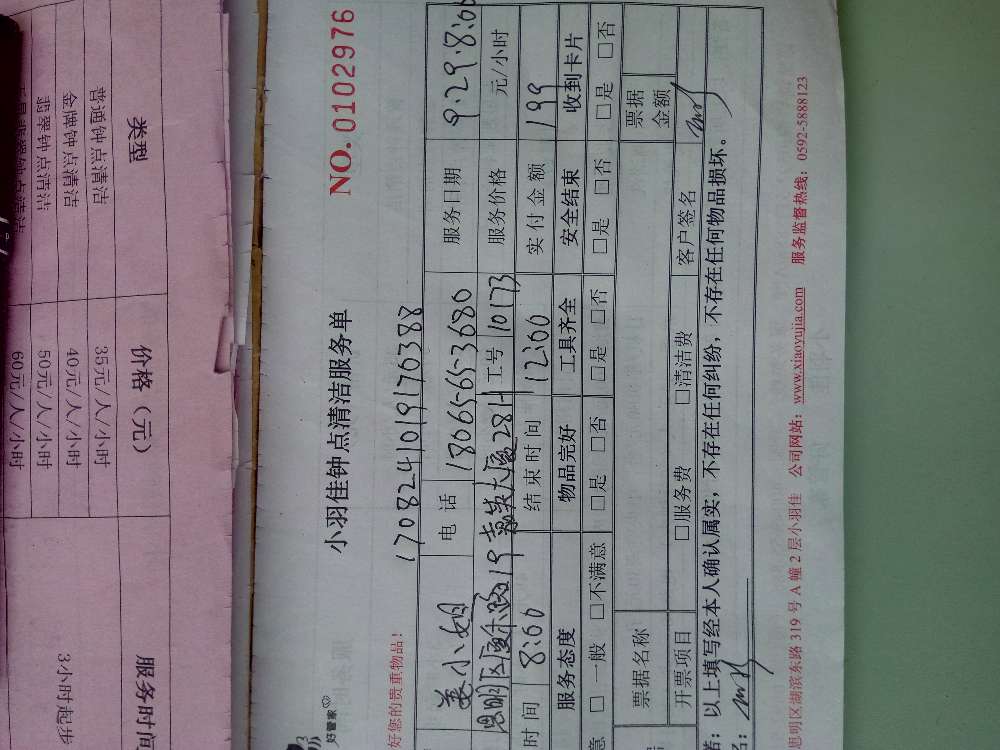 好管家
小羽佳钟点清洁服务单
NO. 0102976
好您的贵重物品!
170824101917​0388
姜小姐
电话
18065653680
服务日期
9.29.8:00
思明区厦禾路19
281
工号
10173
服务价格
元/小时
时间
8:00
结束时间
12:00
实付金额
199
服务态度
物品完好
工具齐全
安全结束
收到卡片
意 □一般 □不满意
□是 □否
□是 □否
□是 □否
□是 □否
票据名称
票据金额
开票项目
□服务费 □清洁费
客户签名
诺:以上填写经本人确认属实,不存在任何纠纷,不存在任何物品损坏。
名:
思明区湖滨东路 319 号 A 幢 2 层小羽佳 公司网站:www.xiaoyujia.com 服务监督热线:0592-5888123
类型
价格(元)
服务时间
普通钟点清洁
35元/人/小时
3小时起步
金牌钟点清洁
40元/人/小时
翡翠钟点清洁
50元/人/小时
60元/人/小时